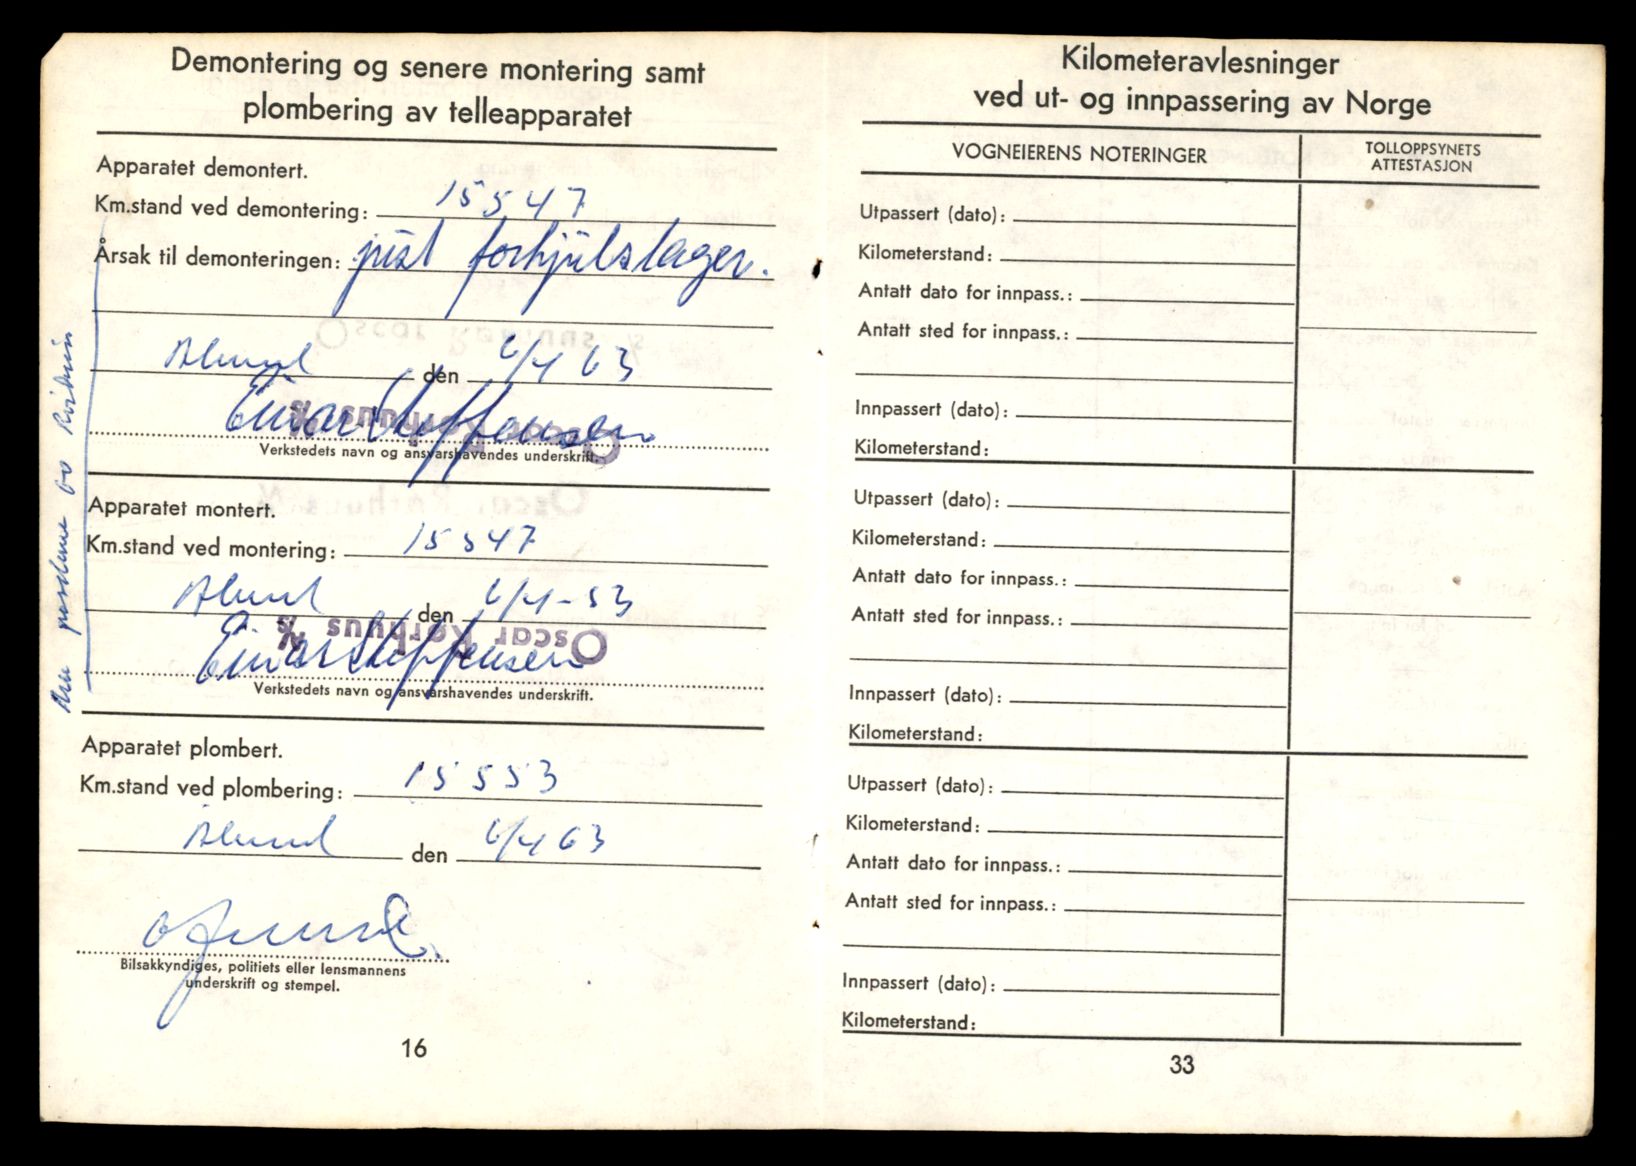 Demontering og senere montering samt
plombering av telleapparatet
Apparatet demontert.
Km.stand ved demontering: 15547
Årsak til demonteringen: just forhjulslager.
Ålesund den 6/4 63
Einar Steffensen
Oscar Rørhuus A/S
Verkstedets navn og ansvarshavendes underskrift.
Apparatet montert.
Km.stand ved montering: 15547
Ålesund den 6/4-53
Einar Steffensen
Oscar Rørhuus A/S
Verkstedets navn og ansvarshavendes underskrift.
Apparatet plombert.
Km.stand ved plombering: 15553
Ålesund den 6/4 63
Bilsakkyndiges, politiets eller lensmannens
underskrift og stempel.
16
Kilometeravlesninger
ved ut- og innpassering av Norge
VOGNEIERENS NOTERINGER
TOLLOPPSYNETS
ATTESTASJON
Utpassert (dato):
Kilometerstand:
Antatt dato for innpass.:
Antatt sted for innpass.:
Innpassert (dato):
Kilometerstand:
Utpassert (dato):
Kilometerstand:
Antatt dato for innpass.:
Antatt sted for innpass.:
Innpassert (dato):
Kilometerstand:
Utpassert (dato):
Kilometerstand:
Antatt dato for innpass.:
Antatt sted for innpass.:
Innpassert (dato):
Kilometerstand:
33